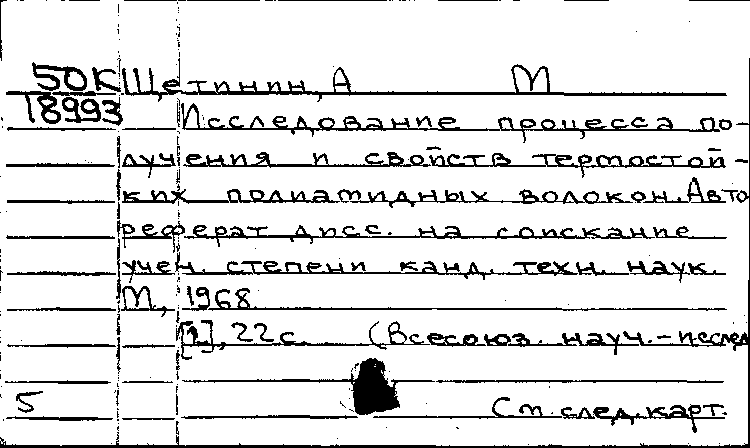 50К Щетинин, А М
18993 Исследование процесса по-
лучения и свойств термостой-
ких полиамидных волокон. Авто
реферат дисс. на соискание
учен. степени канд. техн. наук.
М, 1968
[1], 22 с. (Всесоюз. науч.-исслед
5 См. след. карт.